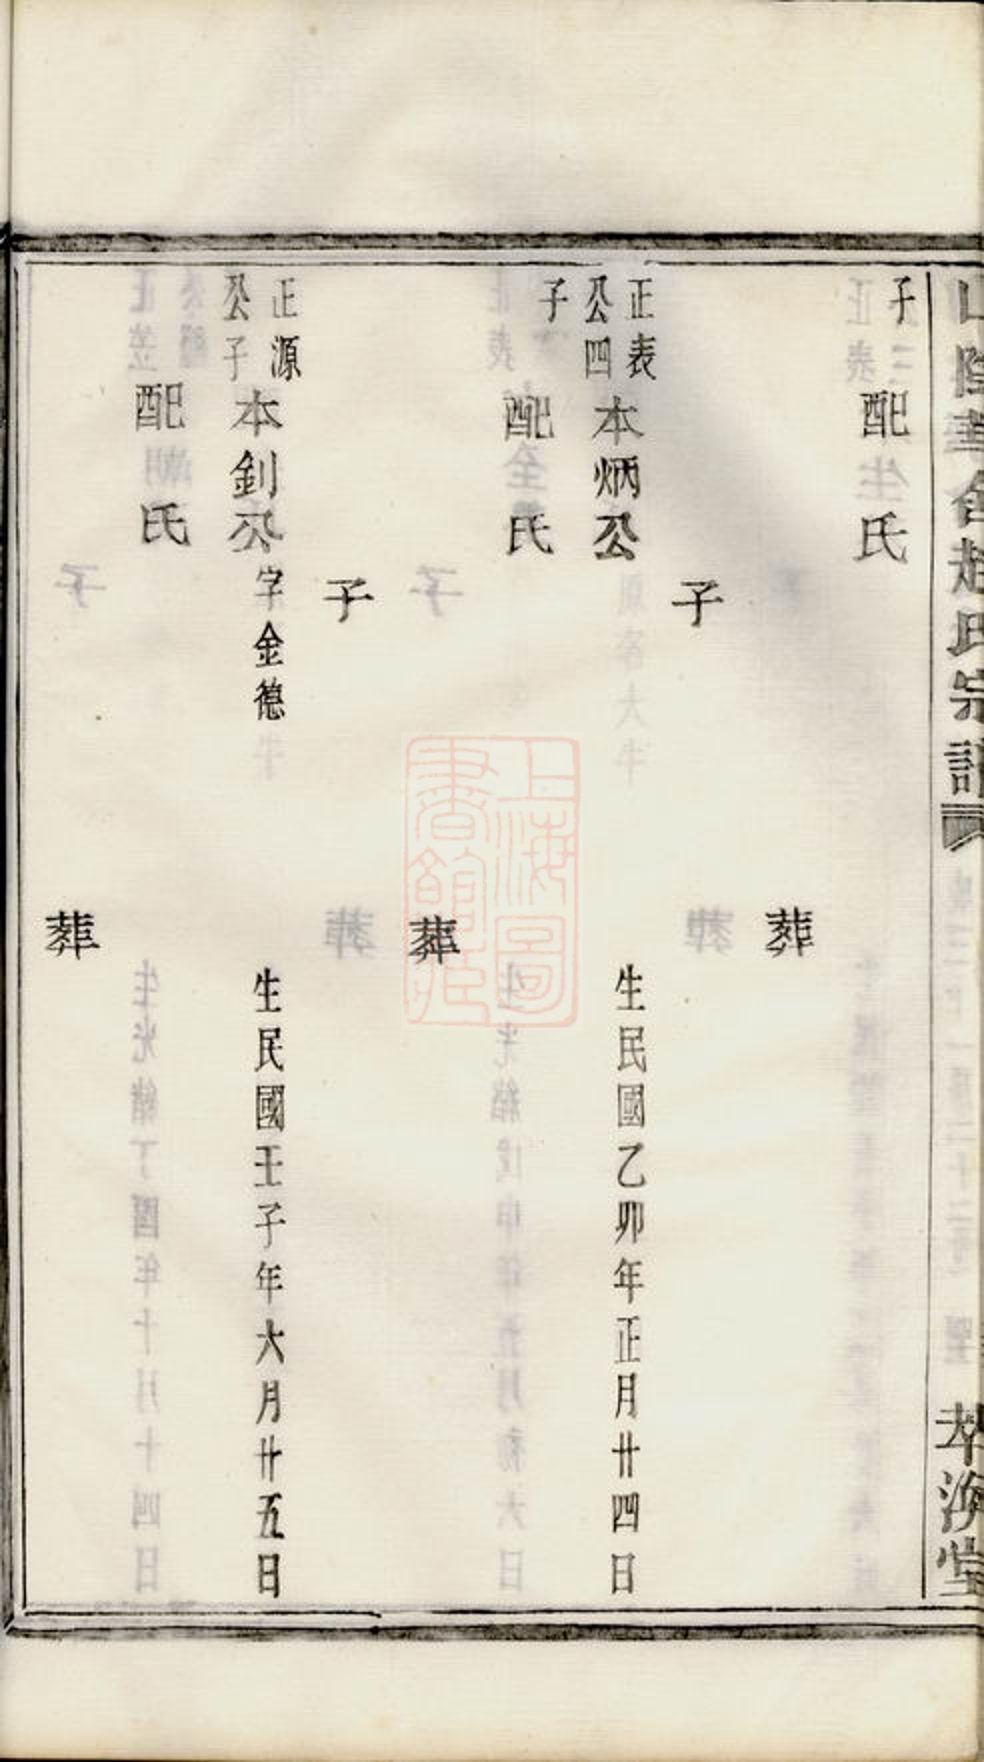 山陰華舍趙氏宗譜
萃渙堂
子
配 氏
子
葬
正表
公四
子
本炳公
生民國乙卯年正月廿四日
配 氏
子
葬
正源
公子
本釗公
字金德
生民國壬子年六月廿五日
配 氏
葬
上海圖書館藏